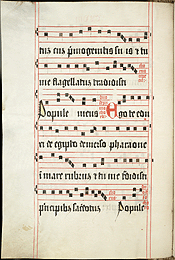 tus cū pmogenitis su is & tu
me flagellatus tradidisti
Popule meus Ego te edu
xi de egipto demerso pharaone
ī mare rubrum & tu me tdidisti
pncipibus sacdotū Popule